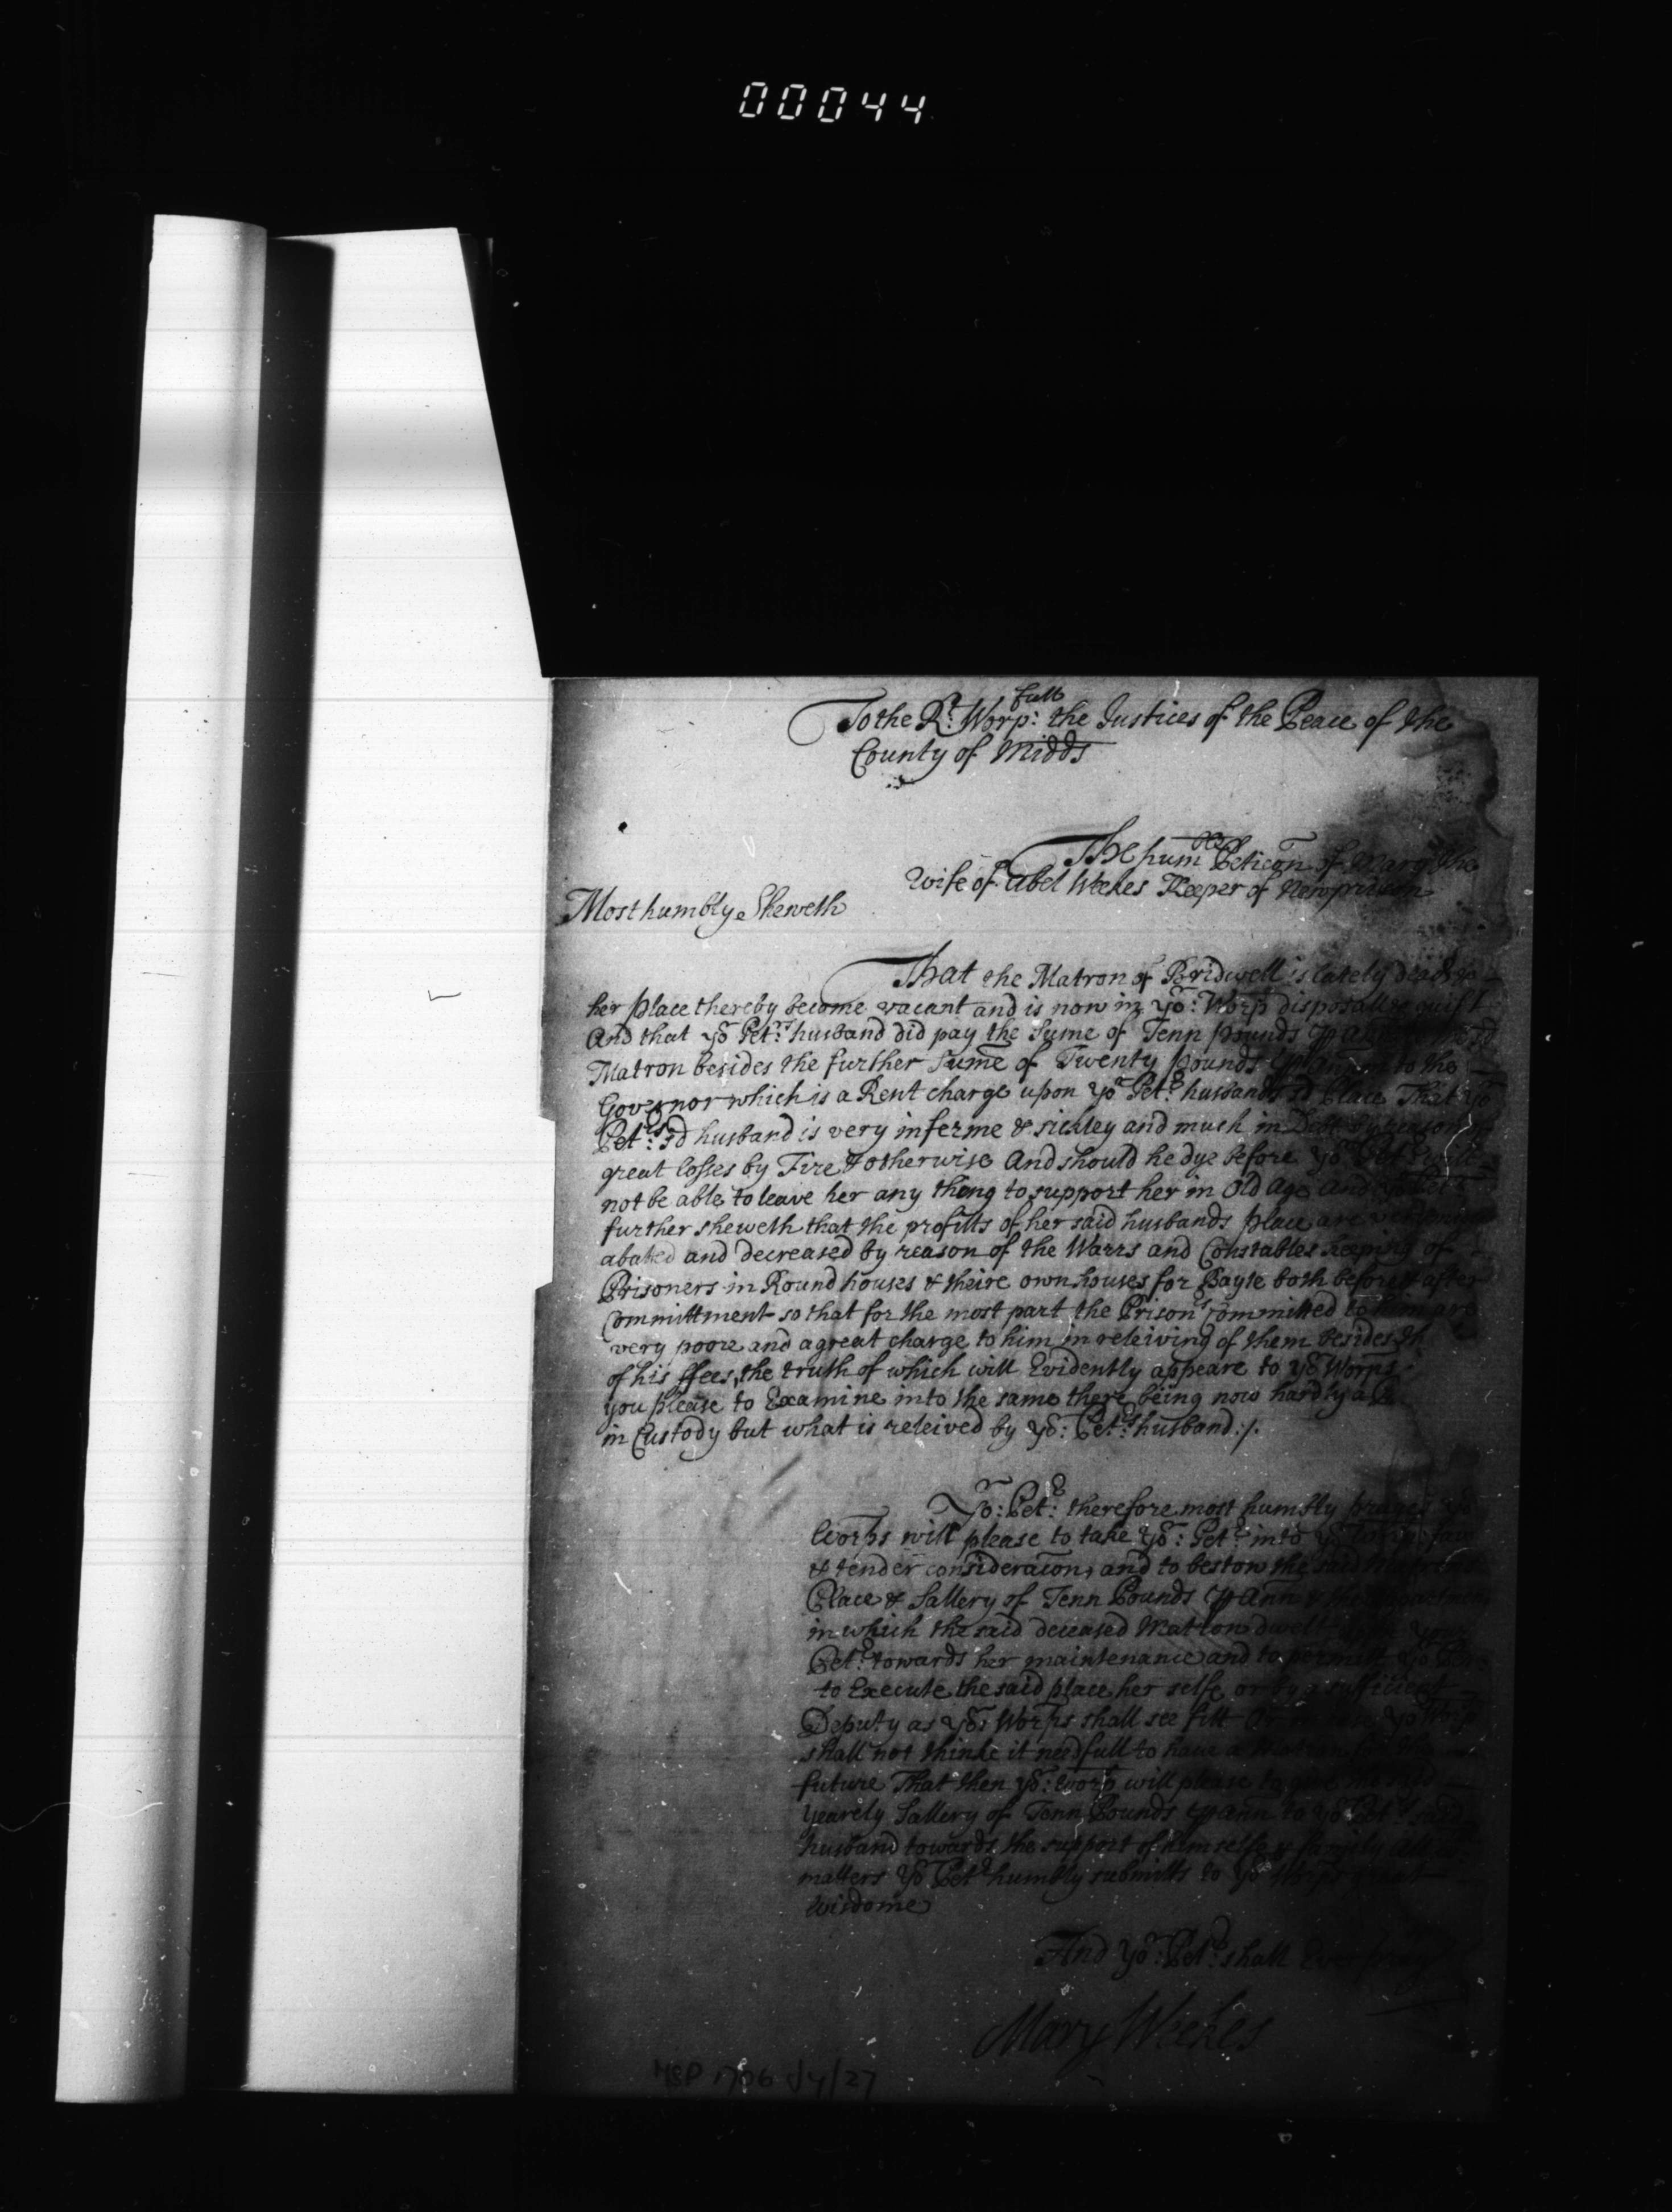 00044
To the Rt. Worpfull: the Justices of the Peace of the
County of Midds
The humble Peticon of Mary the
Wife of Abel Weekes Keeper of Newprison
Most humbly Sheweth
That the Matron of Bridwell is lately dead &
her place thereby become vacant and is now in yor: Worps disposall
And that yor Petrs: husband did pay the Sume of Tenn pounds
Matron besides the further Sume of Twenty pounds to the
Governor which is a Rent charge upon yor Petrs: husbands sd Place That Yor
Petrs: sd husband is very inferme & sickley and much in Debt by reason of
great losses by Fire & otherwise And should he dye before yor Petr will
not be able to leave her any thing to support her in Old Age And
further sheweth that the profitts of her said husbands place are
abated and decreased by reason of the Warrs and Constables keeping of
Prisoners in Round houses & theire own houses for Bayle both before & after
Committment so that for the most part the Prisonrs committed to him are
very poore and a great charge to him in releiving of them besides
of his ffees, the truth of which will Evidently appeare to yor Worps
you please to Examine into the same there being now hardly a
in Custody but what is releived by yor: Petrs: husband:/.
Yor: Petr: therefore most humbly prayes yor
Worps will please to take yor: Petr: into yor
& tender consideracon, and to bestow the said
Place & Sallery of Tenn Pounds p Ann &
in which the said deceased Matron dwelt
Petr: towards her maintenance and to permitt yor Petr
to Execute the said place her selfe or by a sufficient
Deputy as yor Worps shall see fitt Or yor Worps
shall not thinke it needfull to have a Matron for the
future That then yor: Worps will please to give the said
yearely Sallery of Tenn Pounds p ann to yor Petrs said
husband towards the support of himselfe & family All
matters yor Petr humbly submitts to yor Worps great
Wisdome
And yor: Petr: shall Ever pray
Mary Weekes
MSP 1706 Jy/27